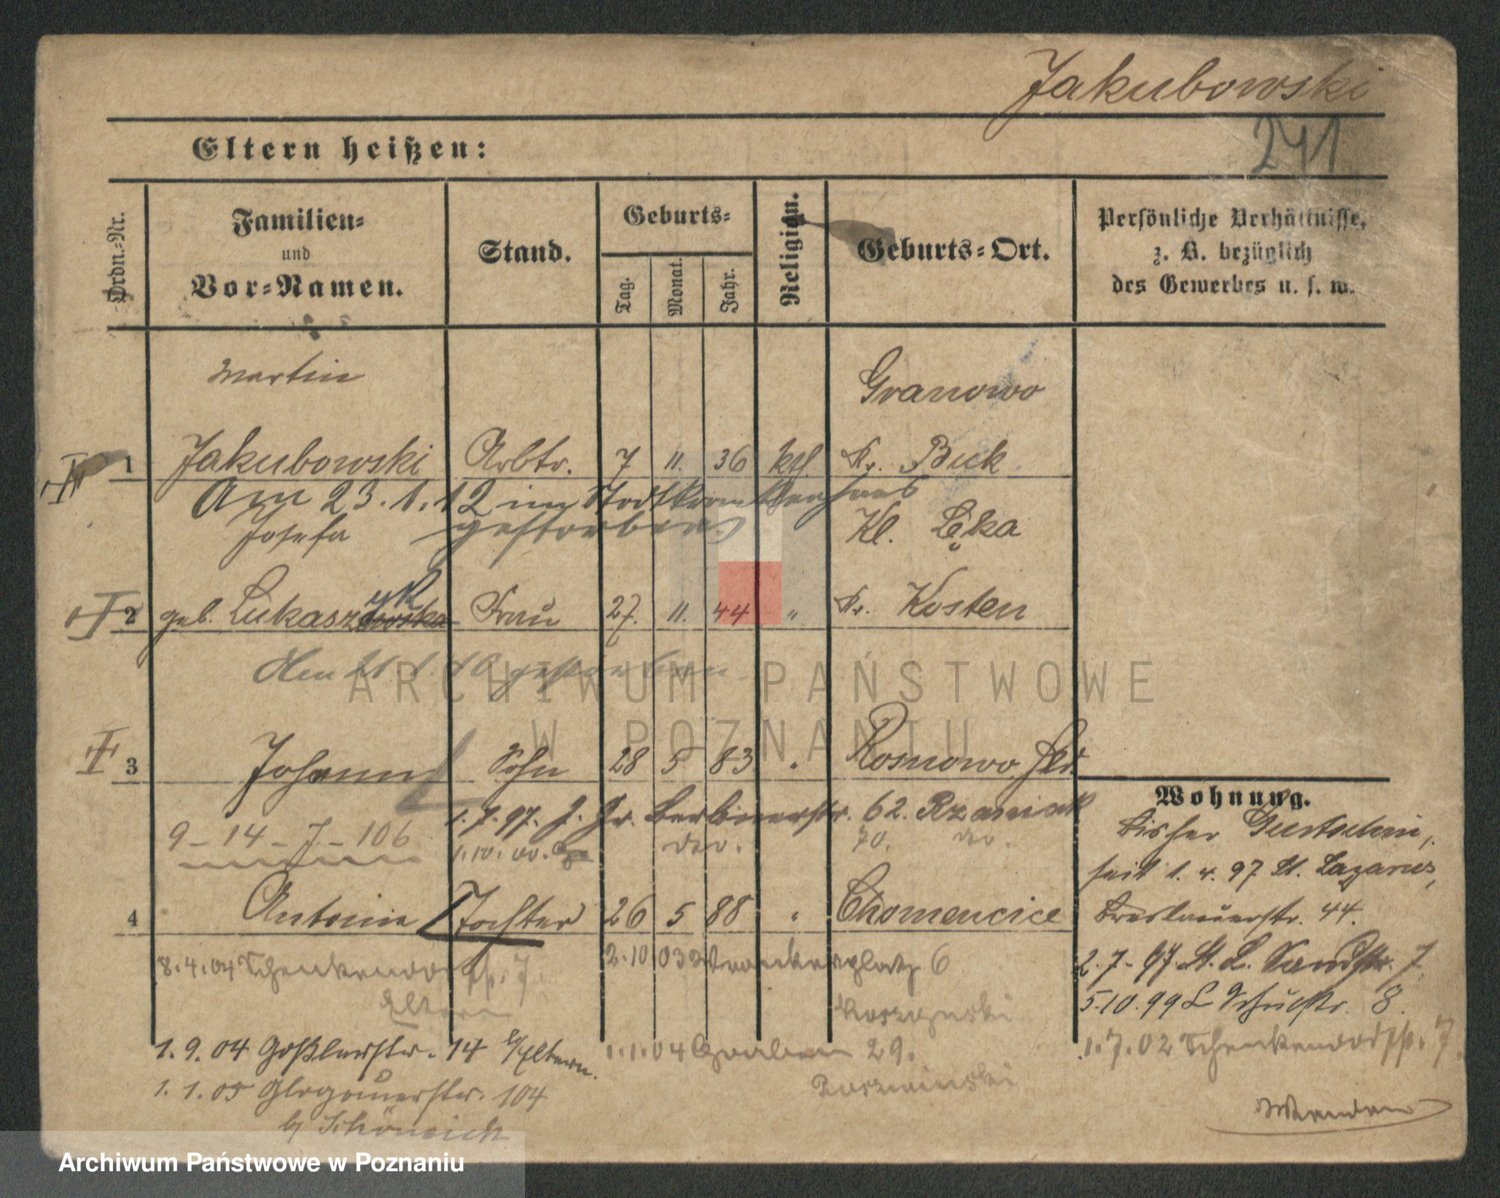 Jakubowski
241
Eltern heißen:
Ordn.-Nr.
Familien-
und
Vor-Namen.
Stand.
Geburts-
Tag.
Monat.
Jahr.
Religion.
Geburts-Ort.
Persönliche Verhältnisse,
z. B. bezüglich
des Gewerbes u. s. w.
Martin Granowo
1 Jakubowski Arbtr. 7 11. 36 ktl Kr. Buk
Am 23.1.12 im Stadtkrankenhaus
gestorben
Josefa Kl. Lęka
2 geb. Lukaszewska Frau 27. 11. 44 " Kr. Kosten
gestorben
3 Johann Sohn 28 5 83 " Rosnowo
1.7.97. J. Gr. Berlinerstr. 62. Rzaniak
9-14-J-106
1.10.00. do. 70. do.
4 Antonie Tochter 26 5 88 " Chomencice
8.4.04 Schenkendorfstr. 7.
Eltern
2.10.03 6
1.9.04 Goßlerstr. 14 b/Eltern.
1.1.04 Graben 29.
1.1.05 Glogauerstr. 104
b/ Schöneich
Wohnung.
Bisher Gurtschin,
seit 1.4.97 St. Lazarus,
Breslauerstr. 44.
2.7.97 St. L. Sandstr. 7.
5.10.99 L Schulstr. 8.
1.7.02 Schenkendorfstr. 7.
ARCHIWUM PAŃSTWOWE
W POZNANIU
Archiwum Państwowe w Poznaniu